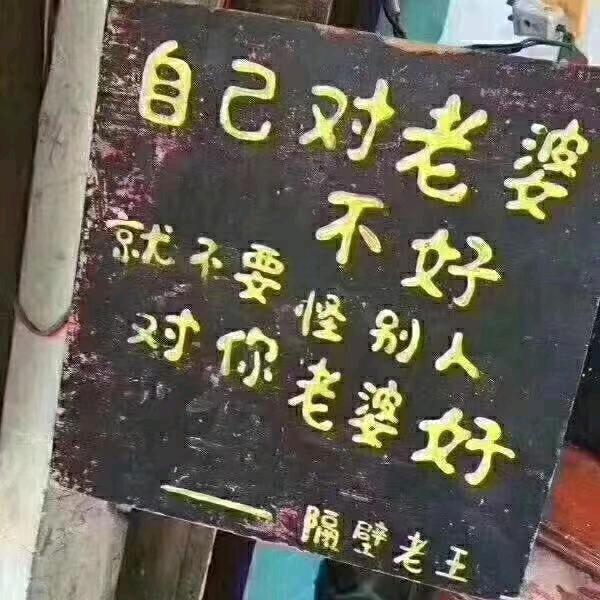 自己对老婆
不好
就不要怪别人
对你老婆好
——隔壁老王